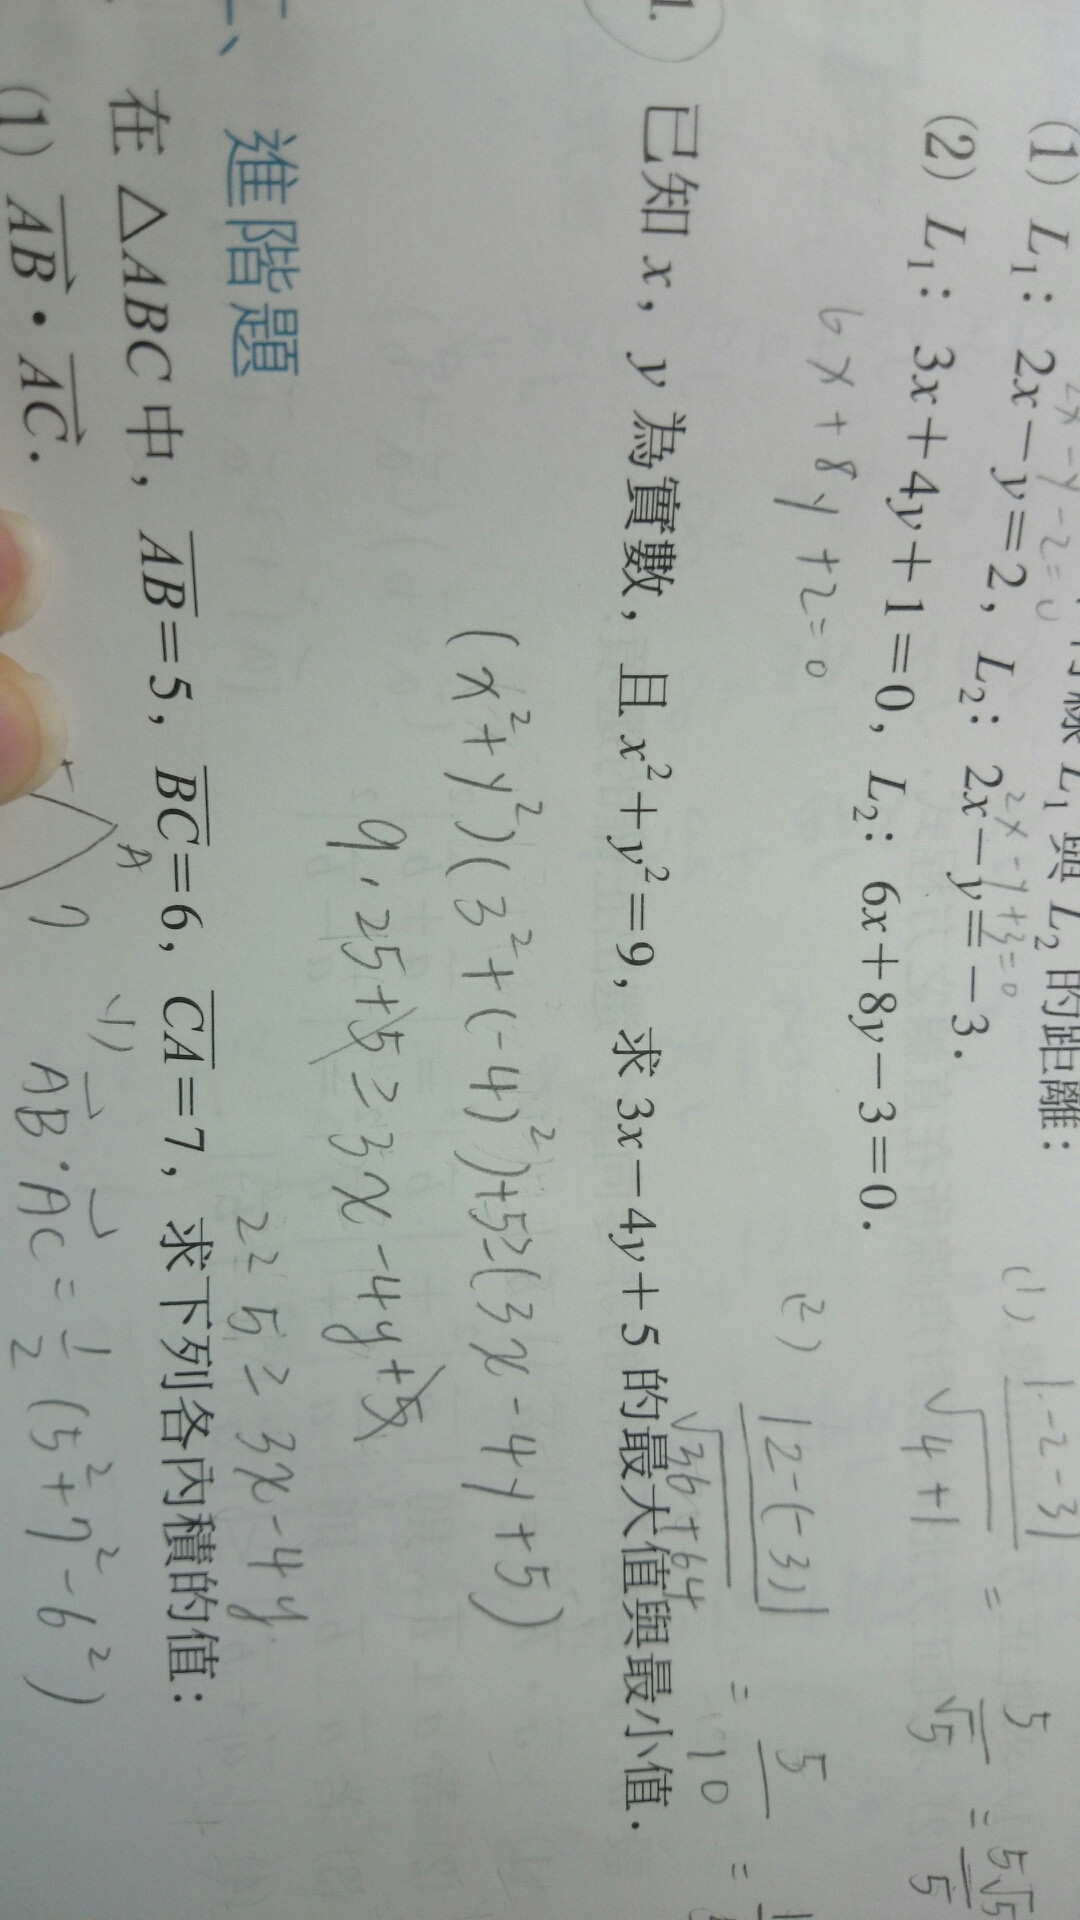 線 L₁ 與 L₂ 的距離：
2x-y-2=0
2x-y+3=0
(1) L₁：2x－y＝2，L₂：2x－y＝－3．
(1) |-2-3| / √4+1 = 5/√5 = 5√5/5
(2) L₁：3x＋4y＋1＝0，L₂：6x＋8y－3＝0．
6x+8y+2=0
(2) |2-(-3)| / √36+64 = 5/10 =
1. 已知 x，y 為實數，且 x²＋y²＝9，求 3x－4y＋5 的最大值與最小值．
(x²+y²)(3²+(-4)²)+5≥(3x-4y+5)
9·25+5≥3x-4y+5
225≥3x-4y
二、進階題
在 △ABC 中，AB＝5，BC＝6，CA＝7，求下列各內積的值：
A
7
(1) AB・AC．
(1) AB·AC=1/2(5²+7²-6²)